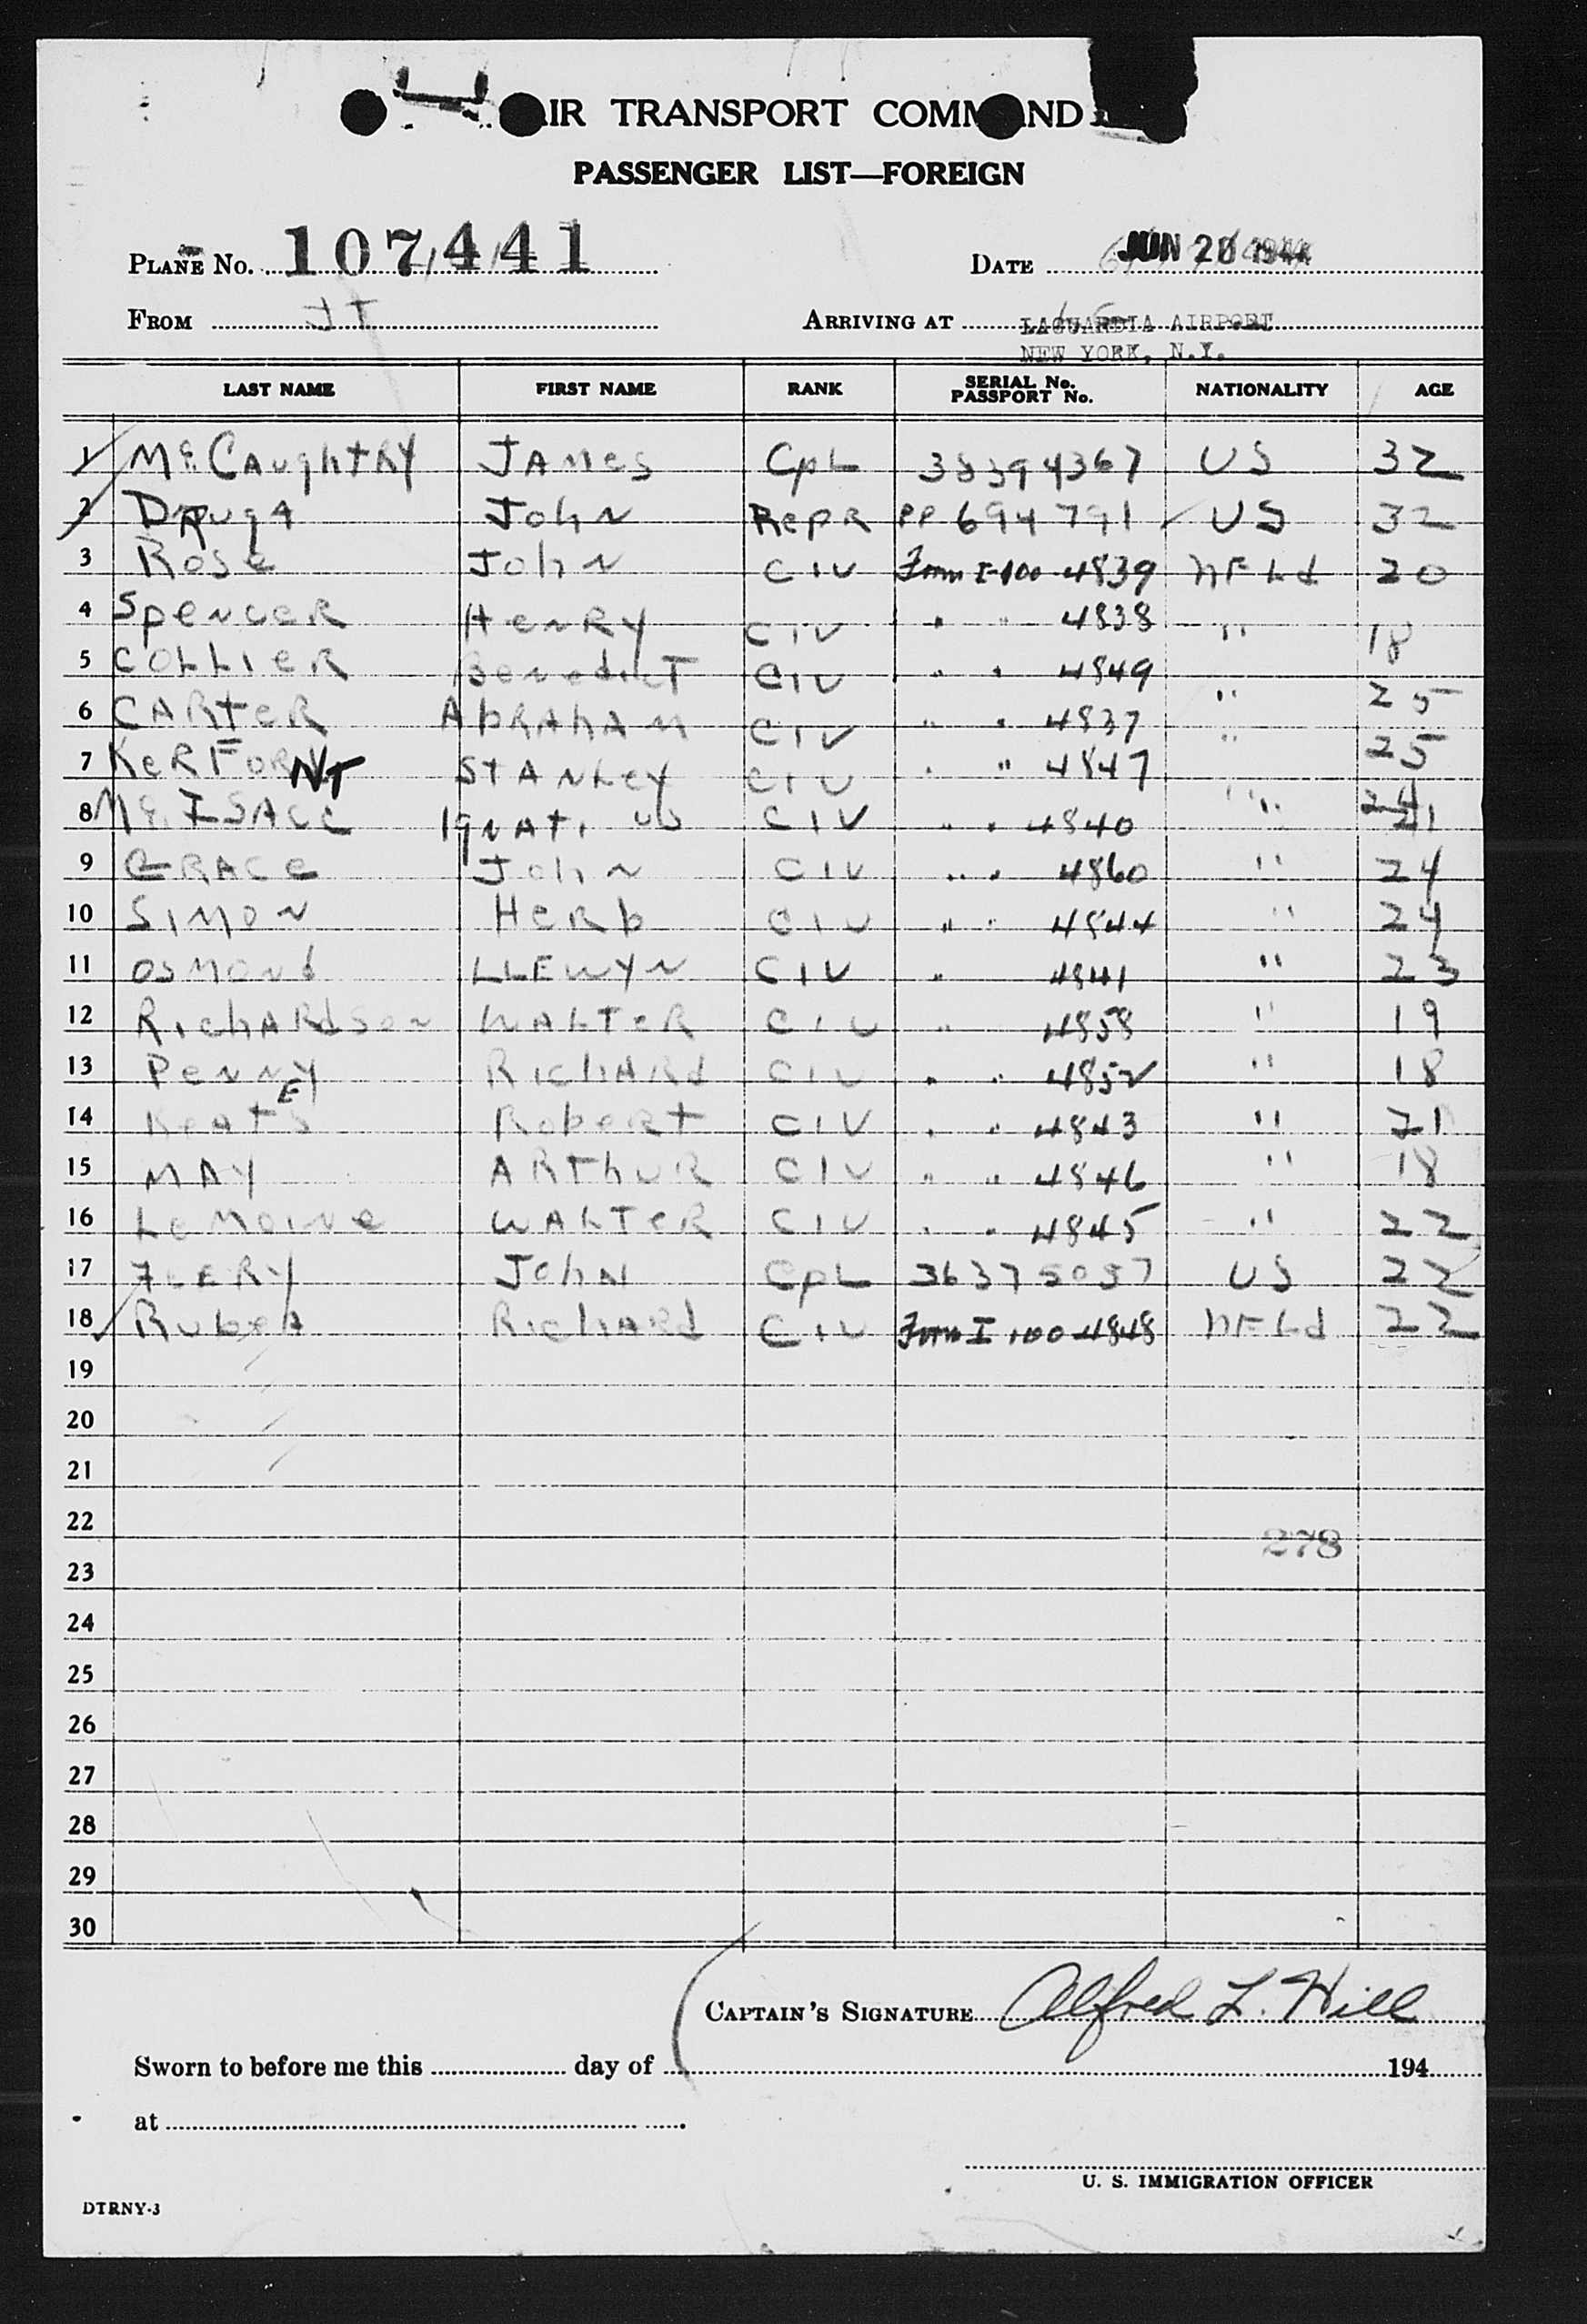 AIR TRANSPORT COMMAND
PASSENGER LIST—FOREIGN
PLANE No. 107441 DATE JUN 20 1944
FROM JT ARRIVING AT LAGUARDIA AIRPORT
NEW YORK, N.Y.
LAST NAME FIRST NAME RANK SERIAL No. PASSPORT No. NATIONALITY AGE
1 McCAughtRY JAMes CpL 38394367 US 32
2 John RepR PP 694791 US 32
3 Rose John CIV Form I-100 4839 NFLd 20
4 SpenceR HenRY CIV " " 4838 " 18
5 COLLIeR BenedicT CIV " " 4849 " 25
6 CARteR AbRAhAM CIV " " 4837 " 25
7 KeRFoRNT STANLey CIV " " 4847 "
8 Mc ISAcc IgNATius CIV " " 4840 " 21
9 GRACe John CIV " " 4860 " 24
10 SIMON HeRb CIV " " 4844 " 24
11 OSMONd LLEWYN CIV " 4841 " 23
12 RichARdson WALTeR CIV " 4858 " 19
13 PenneY RichARd CIV " " 4852 " 18
14 Keats RobeRt CIV " " 4843 " 21
15 MAY ARThuR CIV " " 4846 " 18
16 LeMoine WALTeR CIV " " 4845 " 22
17 JohN CpL 36375057 US 22
18 RichARd CIV Form I 100-4848 NFLd 22
19
20
21
22 278
23
24
25
26
27
28
29
30
CAPTAIN'S SIGNATURE Alfred L. Hill
Sworn to before me this day of 194
at
U. S. IMMIGRATION OFFICER
DTRNY-3